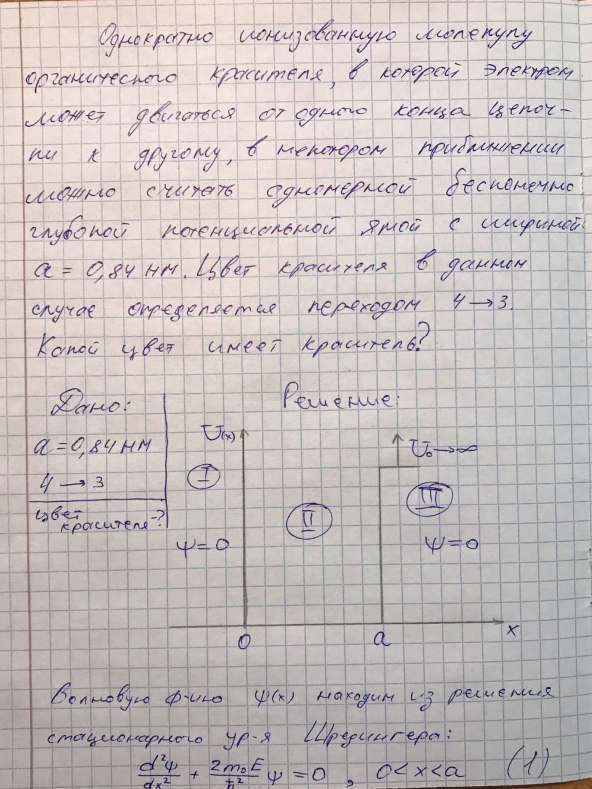 Однократно ионизованную молекулу
органического красителя, в которой электрон
может двигаться от одного конца цепоч-
ки к другому, в некотором приближении
можно считать одномерной бесконечно
глубокой потенциальной ямой с шириной
a = 0,84 нм. Цвет красителя в данном
случае определяется переходом 4 → 3.
Какой цвет имеет краситель?
Дано:
a = 0,84 нм
4 → 3
цвет
красителя - ?
Решение:
U(x)
U₀ → ∞
I
II
III
ψ = 0
ψ = 0
0
a
x
Волновую ф-ию ψ(x) находим из решения
стационарного ур-я Шредингера:
d²ψ/dx² + 2m₀E/ħ² ψ = 0 , 0 < x < a (1)